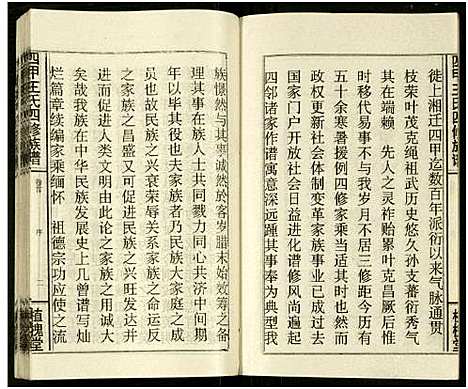 徙上湘迁四甲迄数百年派衍以来气脉通贯
枝荣叶茂克绳祖武历史悠久孙支蕃衍秀气
其在端赖　先人之灵祚贻累叶克昌厥后惟
时移代易事不与我岁月不居三修距今历有
五十余寒暑援例四修家乘当适时也然而
政权更新社会体制变革家族事业已成过去
国家门户开放经济日益剧增修风尚遍起
四邻诸家作谱寓意深远踵其事奉为典型我
族憬然与之诚然于客岁腊末始效筹之备
理其事在族人士共同戮力同心共济中间期
年以毕其役夫家族者乃民族大家庭之成
员也故民族之兴衰荣辱感染影响于家族
之家族之昌盛又可促进民族之兴旺发达并
进而促进人类文明由此论之家族之用诚大
矣哉我族在中华民族发展史上几曾谱写灿
烂篇章续编家乘缅怀　祖德宗功应使之流
四甲王氏四修族谱
卷首　序　二
植槐堂
四甲王氏四修族谱
植槐堂